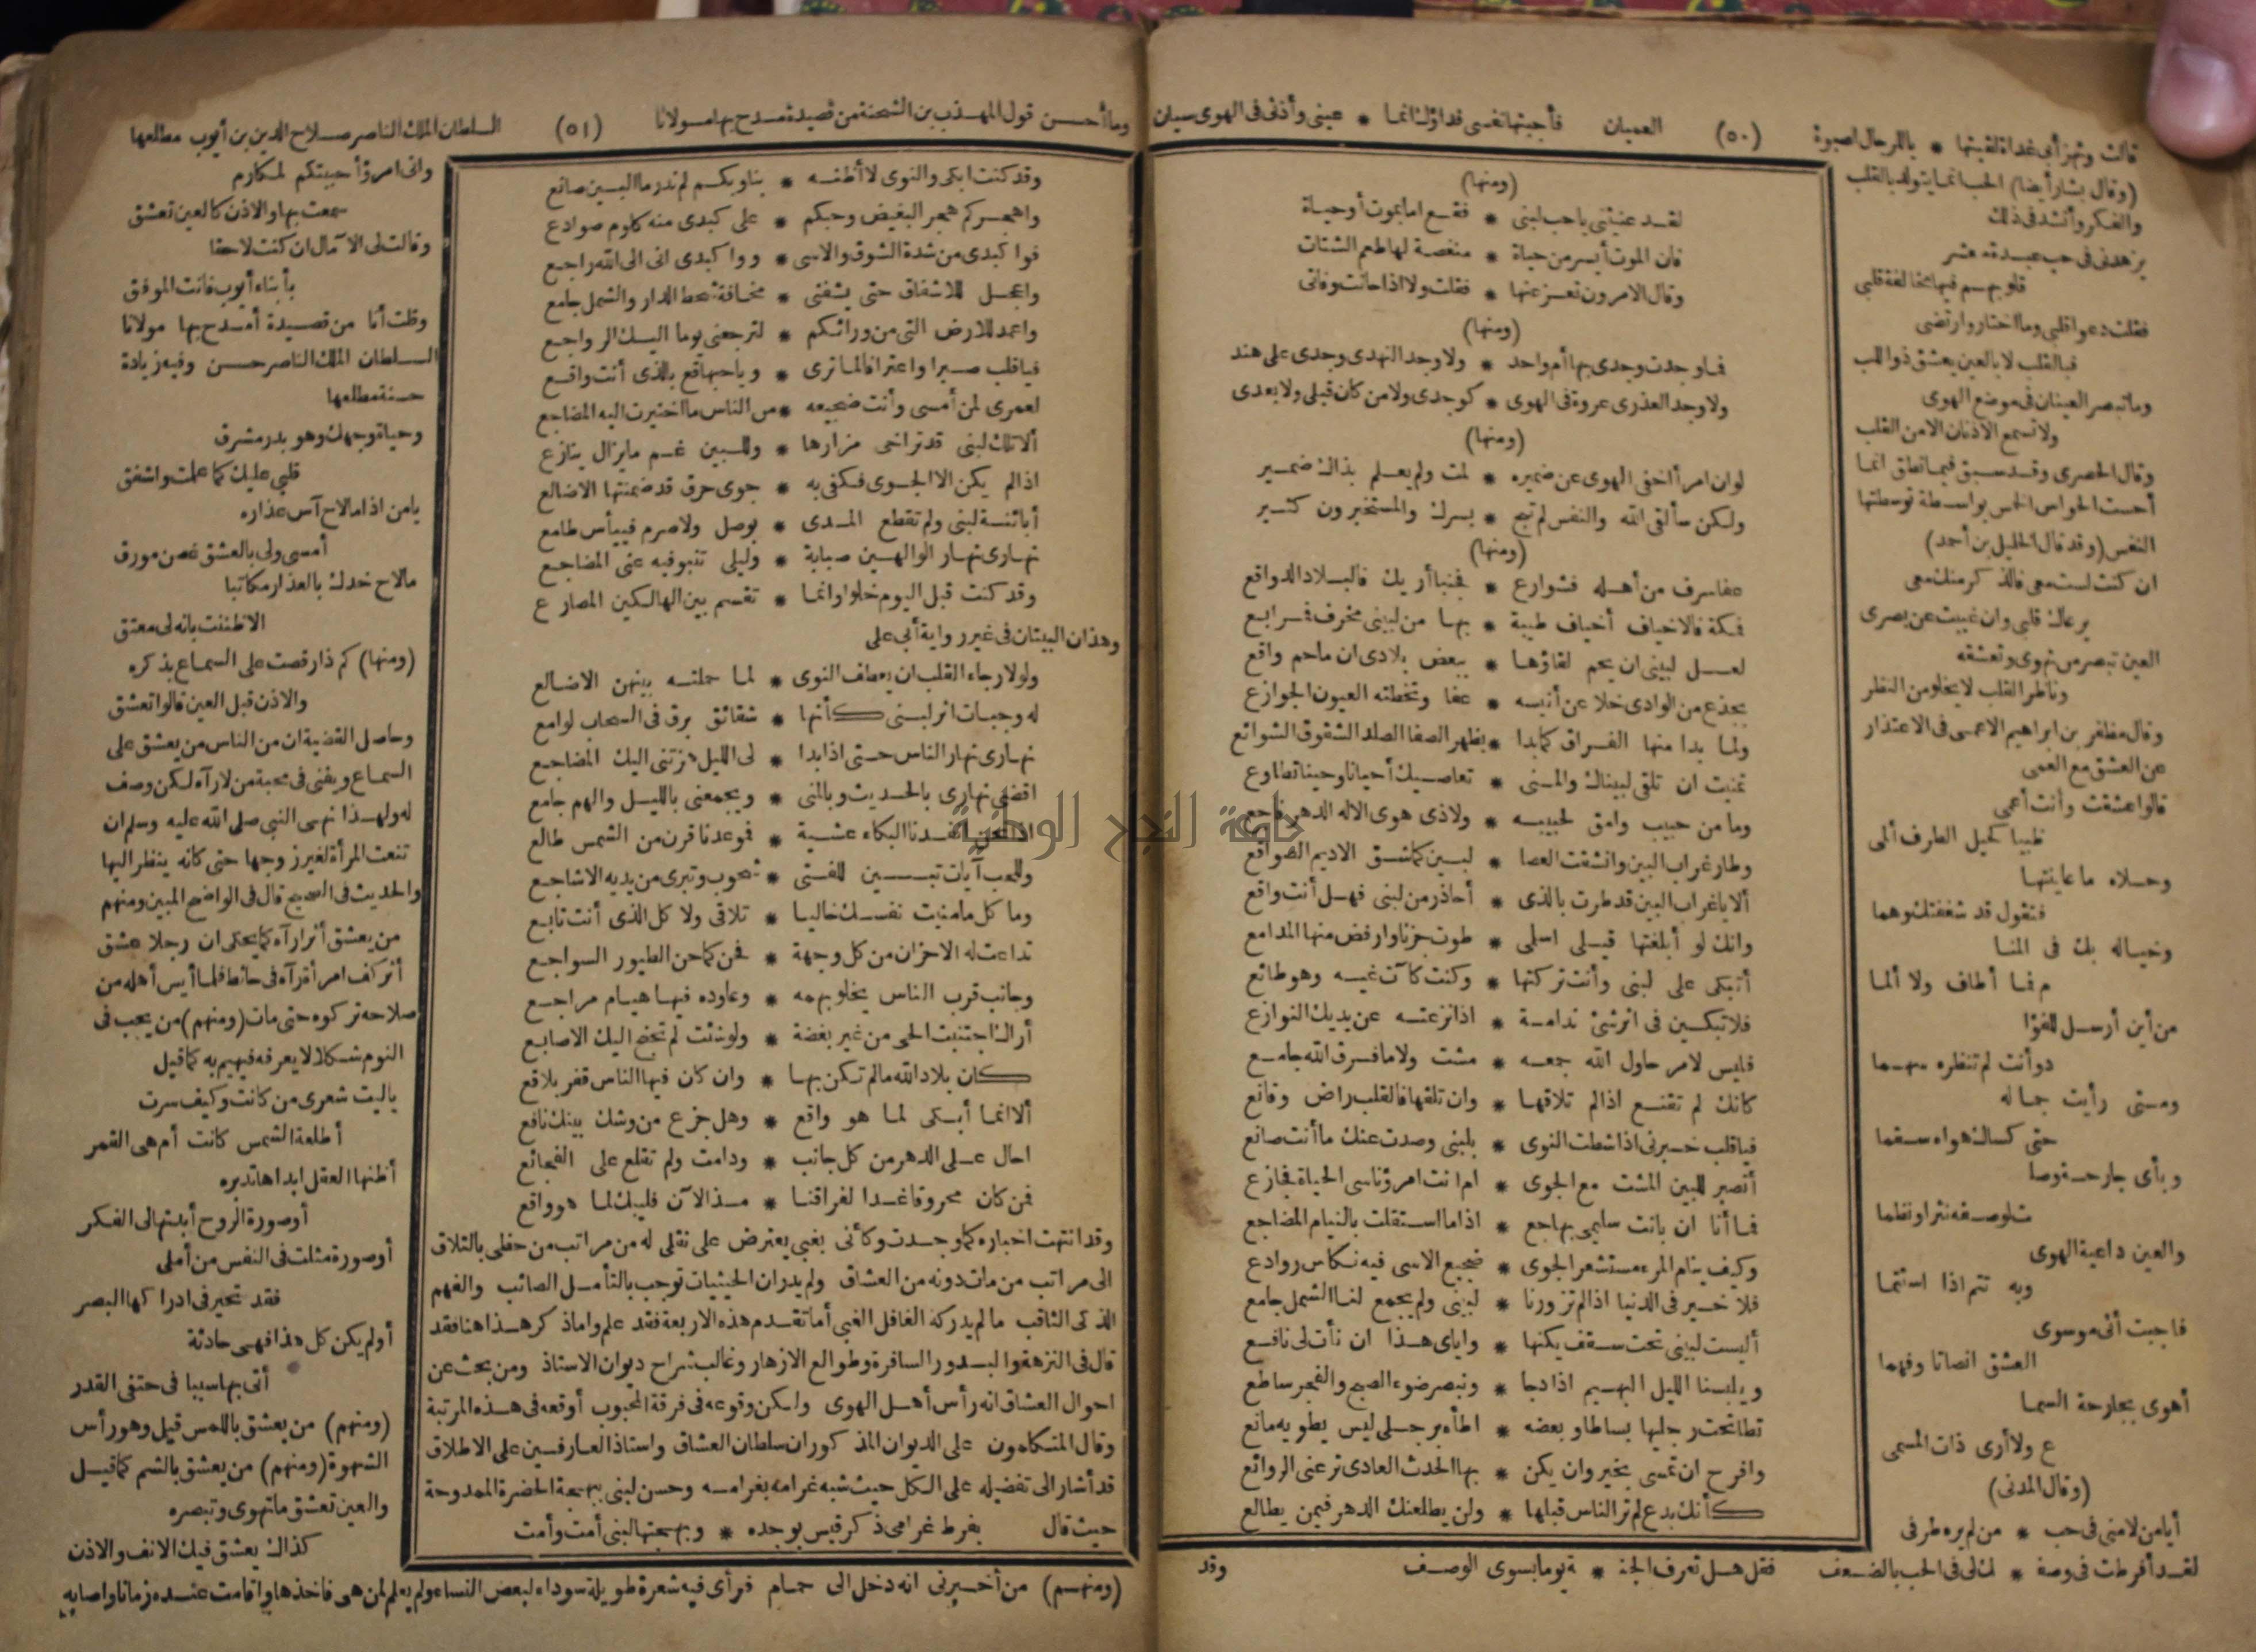 العميان (٥٠) فأجبتها نفسى فداؤك انما * عينى وأذنى فى الهوى سيان
قالت وتهزأبى غداة لقيتها * ياللرجال لصبوة
(وقال بشار أيضا) الحب انما يتولد بالقلب
والفكر وأنشد فى ذلك
يزهدنى فى حب عبدة معشر
قلوبهم فيها مخالفة قلبى
فقلت دعوا قلبى وما اختار وارتضى
فبالقلب لا بالعين يعشق ذو اللب
وما تبصر العينان فى موضع الهوى
ولا تسمع الاذنان الا من القلب
وقال الحصرى وقد سبق فيما نطق انما
أحست الحواس الخمس بواسطة توسطتها
النفس (وقد قال الخليل بن أحمد)
ان كنت لست معى فالذكر منك معى
يرعاك قلبى وان غيبت عن بصرى
العين تبصر من تهوى وتعشقه
وناظر القلب لا يخلو من النظر
وقال مظفر بن ابراهيم الاعمى فى الاعتذار
عن العشق مع العمى
قالوا عشقت وأنت أعمى
ظبيا كحيل الطرف ألمى
وحلاه ما عاينتها
فنقول قد شغفتك وهما
وخياله بك فى المنا
م فما أطاف ولا ألما
من أين أرسل للفؤا
د وأنت لم تنظره سهما
ومتى رأيت جماله
حتى كساك هواه سقما
وبأى جارحة وصا
ت لوصفه نثرا ونظما
والعين داعية الهوى
وبه تتم اذا استتما
فاجبت أنى موسوى
العشق انصاتا وفهما
أهوى بجارحة السما
ع ولا أرى ذات المسمى
(وقال المدنى)
أيا من لامنى فى حب * من لم يره طرفى
لقد أفرطت فى وصفـ * ـك لى فى الحب بالضعف فقل هل تعرف الجنـ * ـة يوما بسوى الوصف وقد
(ومنها)
لقد عنيتنى يا حب لبنى * فقع اما بموت أو حياة
فان الموت أيسر من حياة * منغصة لها طعم الشتات
وقال الآمرون تعز عنها * فقلت ولا اذا حانت وفاتى
(ومنها)
فما وجدت وجدى بها أم واحد * ولا وجد النهدى وجدى على هند
ولا وجد العذرى عروة فى الهوى * كوجدى ولا من كان قبلى ولا بعدى
(ومنها)
لو ان امرأ أخفى الهوى عن ضميره * لمت ولم يعلم بذاك ضمير
ولكن سألقى الله والنفس لم تبح * بسرك والمستخبرون كثير
(ومنها)
عفا سرف من أهله فشوارع * فجنبا أريك فالبلاد الدوافع
فمكة فالاخياف أخياف طيبة * بها من لبينى مخرف فمرابع
لعل لبينى ان يحم لقاؤها * ببعض بلادى ان ماحم واقع
بجذع من الوادى خلا عن أنيسه * عفا وتخطته العيون الجوازع
ولما بدا منها الفراق كما بدا * بظهر الصفا الصلد الشقوق الشوائع
تمنيت ان تلقى لبيناك والمنى * تعاصيك أحيانا وحينا تطاوع
وما من حبيب وامق لحبيبه * ولا ذى هوى الا له الدهر فاجع
وطار غراب البين وانشقت العصا * لبين كما شق الاديم الصوانع
ألا يا غراب البين قد طرت بالذى * أحاذر من لبنى فهل أنت واقع
وانك لو أبلغتها قيلى اسلمى * طوت حزنا وارفض منها المدامع
أتبكى على لبنى وأنت تركتها * وكنت كآت غيه وهو طائع
فلا تبكين فى اثر شئ ندامة * اذا نزعته عن يديك النوازع
فليس لامر حاول الله جمعه * مشت ولا ما فرق الله جامع
كانك لم تقنع اذا لم تلاقها * وان تلقها فالقلب راض وقانع
فيا قلب خبرنى اذا شطت النوى * بلبنى وصدت عنك ما أنت صانع
أتصبر للبين المشت مع الجوى * ام انت امرؤ ناسى الحياة فجازع
فما أنا ان بانت سليمى بهاجع * اذا ما استقلت بالنيام المضاجع
وكيف ينام المرء مستشعر الجوى * ضجيع الاسى فيه نكاس روادع
فلا خير فى الدنيا اذا لم تزورنا * لبينى ولم يجمع لنا الشمل جامع
أليست لبينى تحت سقف يكنها * واياى هذا ان نأت لى نافع
ويلبسنا الليل البهيم اذا دجا * ونبصر ضوء الصبح والفجر ساطع
تطا تحت رجليها بساطا وبعضه * اطأه برجلى ليس يطويه مانع
وافرح ان تمسى بخير وان يكن * بها الحدث العادى ترعنى الروائع
كأنك بدع لم تر الناس قبلها * ولن يطلعنك الدهر فيمن يطالع
وما أحسن قول المهذب بن الشحنة من قصيدة مدح بها مولانا (٥١) السلطان الملك الناصر صلاح الدين بن أيوب مطلعها
وقد كنت ابكى والنوى لا أظنه * بنا وبكم لم ندر ما البين صانع
واهجركم هجر البغيض وحبكم * على كبدى منه كلوم صوادع
فوا كبدى من شدة الشوق والاسى * ووا كبدى انى الى الله راجع
واعجل للاشفاق حتى يشفنى * مخافة شحط الدار والشمل جامع
واعمد للارض التى من ورائكم * لترجعنى يوما اليك الرواجع
فيا قلب صبرا واعترافا لما ترى * ويا حبها قع بالذى أنت واقع
لعمرى لمن أمسى وأنت ضجيعه * من الناس ما اختيرت اليه المضاجع
ألا تلك لبنى قد تراخى مزارها * وللبين غم ما يزال ينازع
اذا لم يكن الا الجوى فكفى به * جوى حرق قد ضمنتها الاضالع
أبائنة لبنى ولم تقطع المدى * بوصل ولا صرم فييأس طامع
نهارى نهار الوالهين صبابة * وليلى تنبو فيه عنى المضاجع
وقد كنت قبل اليوم خلوا وانما * تقسم بين الهالكين المصارع
وهذان البيتان فى غير رواية أبى على
ولولا رجاء القلب ان يعطف النوى * لما حملته بينهن الاضالع
له وجبات اثر لبنى كأنها * شقائق برق فى السحاب لوامع
نهارى نهار الناس حتى اذا بدا * لى الليل هزتنى اليك المضاجع
اقضى نهارى بالحديث وبالمنى * ويجمعنى بالليل والهم جامع
اذا نحن أنفدنا البكاء عشية * فموعدنا قرن من الشمس طالع
وللحب آيات تبين للفتى * شحوب وتبرى من يديه الاشاجع
وما كل ما منيت نفسك خاليا * تلاقى ولا كل الذى أنت تابع
تداعت له الاحزان من كل وجهة * فحن كما حن الطيور السواجع
وجانب قرب الناس يخلو بهمه * وعاوده فيها هيام مراجع
أراك اجتنبت الحى من غير بغضة * ولو شئت لم تجنح اليك الاصابع
كان بلاد الله مالم تكن بها * وان كان فيها الناس قفر بلاقع
ألا انما أبكى لما هو واقع * وهل جزع من وشك بينك نافع
احال على الدهر من كل جانب * ودامت ولم تقلع على الفجائع
فمن كان محزونا غدا لفراقنا * فمذ الآن فليبك لما هو واقع
وقد انتهت اخباره كما وجدت وكأنى بغبى يعترض على نقلى له من مراتب من حظى بالتلاق
الى مراتب من مات دونه من العشاق ولم يدران الحيثيات توجب بالتأمل الصائب والفهم
الذكى الثاقب ما لم يدركه الغافل الغبى أما تقدم هذه الاربعة فقد علم واما ذكر هذا هنا فقد
قال فى النزهة والبدور السافرة وطوالع الازهار وغالب شراح ديوان الاستاذ ومن بحث عن
احوال العشاق انه رأس أهل الهوى ولكن وقوعه فى فرقة المحبوب أوقعه فى هذه المرتبة
وقال المتكلمون على الديوان المذكور ان سلطان العشاق واستاذ العارفين على الاطلاق
قد أشار الى تفضيله على الكل حيث شبه غرامه بغرامه وحسن لبنى ببهجة الحضرة الممدوحة
حيث قال بفرط غرامى ذكر قيس بوجده * وبهجتها لبنى أمت وأمت
وانى امرؤ أحببتكم لمكارم
سمعت بها والاذن كالعين تعشق
وقالت لى الآمال ان كنت لاحقا
بأبناء أيوب فانت الموفق
وقلت أنا من قصيدة أمدح بها مولانا
السلطان الملك الناصر حسن وفيه زيادة
حسنة مطلعها
وحياة وجهك وهو بدر مشرق
قلبى عليك كما علمت واشفق
يا من اذا ما لاح آس عذاره
أمسى ولى بالعشق غصن مورق
مالاح خدك بالعذار مكاتبا
الا ظننت بانه لى معتق
(ومنها) كم ذا رقصت على السماع بذكره
والاذن قبل العين قالوا تعشق
وحاصل القضية ان من الناس من يعشق على
السماع ويفنى فى محبة من لا رآه لكن وصف
له ولهذا نهى النبى صلى الله عليه وسلم ان
تنعت المرأة لغير زوجها حتى كانه ينظر اليها
والحديث فى الصحيح قال فى الواضح المبين ومنهم
من يعشق أثرا رآه كما يحكى ان رجلا عشق
أثر كف امرأة رآه فى حائط فلما أيس أهله من
صلاحه تركوه حتى مات (ومنهم) من يحب فى
النوم شكلا لا يعرفه فيهيم به كما قيل
ياليت شعرى من كانت وكيف سرت
أطلعة الشمس كانت أم هى القمر
أظنها العقل ابداها تدبره
أو صورة الروح أبدتها لى الفكر
أو صورة مثلت فى النفس من أملى
فقد تحير فى ادراكها البصر
أو لم يكن كل هذا فهى حادثة
أتى بها سببا فى حتفى القدر
(ومنهم) من يعشق باللمس قيل وهو رأس
الشهوة (ومنهم) من يعشق بالشم كما قيل
والعين تعشق ما تهوى وتبصره
كذاك يعشق فيك الانف والاذن
(ومنهم) من أخبرنى انه دخل الى حمام فرأى فيه شعرة طويلة سوداء لبعض النساء ولم يعلم لمن هى فاخذها واقامت عنده زمانا واصابه
جامعة النجاح الوطنية